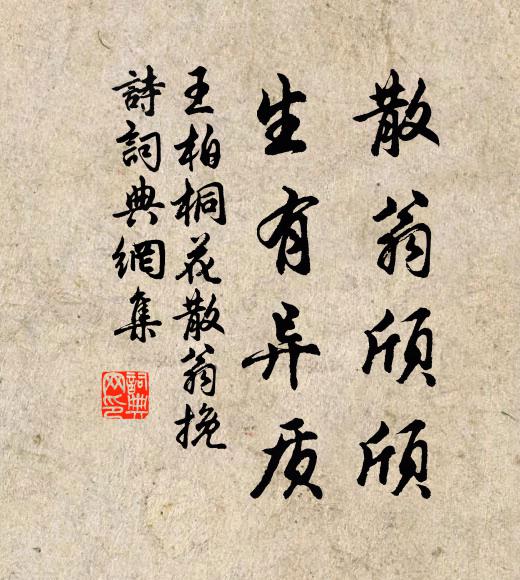 散翁頎頎
生有异质
王柏桐花散翁挽
詩詞典網集
詞典
网印